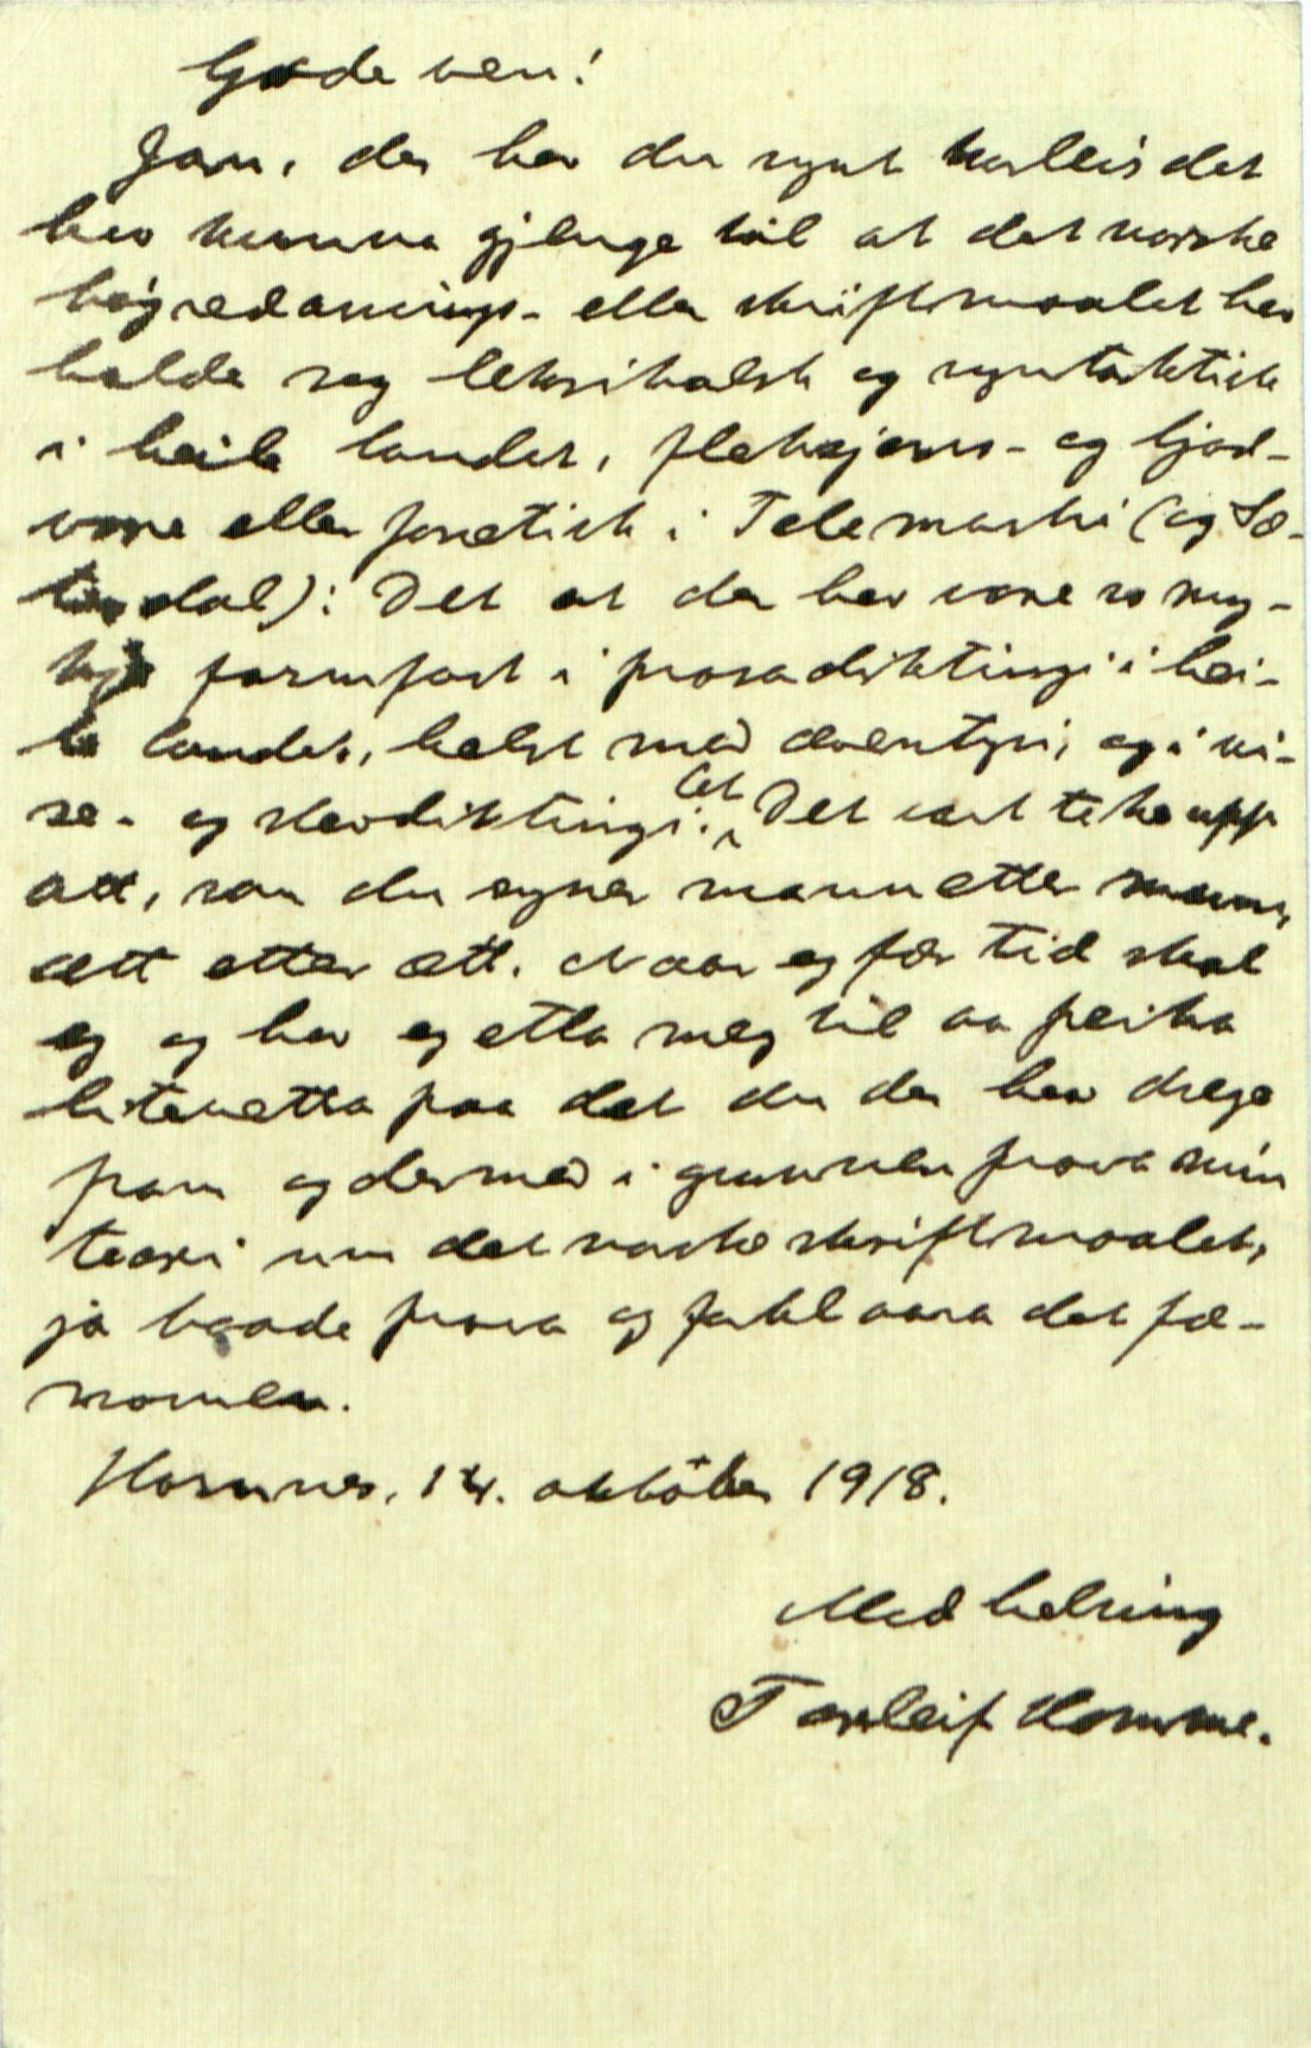 Gode ven!
Jau, der hev du synt korleis det
hev kunna gjenge til at det norske
høgredanings- eller skriftmaalet hev
halde seg leksikalsk og syntaktisk
i heile landet, fleksjons- og ljod-
vare eller fonetisk i Telemarki (og Sæ-
tesdal): Det at der hev vore so my-
kje formfast i prosadiktingi i hei-
le landet, helst med æventyri, og i vi-
se- og stevdiktingi. Det vart teke upp
att, som du syner mann etter mann,
ætt etter ætt. Naar eg fær tid skal
eg og hev eg etla meg til aa peika
litevetta paa det du der hev drege
fram og dermed i grunnen prova min
teori um det norske skriftmaalet,
ja baade prova og forklaara det fæ-
nomen.
Hornnes, 14. oktober 1918.
Med helsing
Torleif Homme.